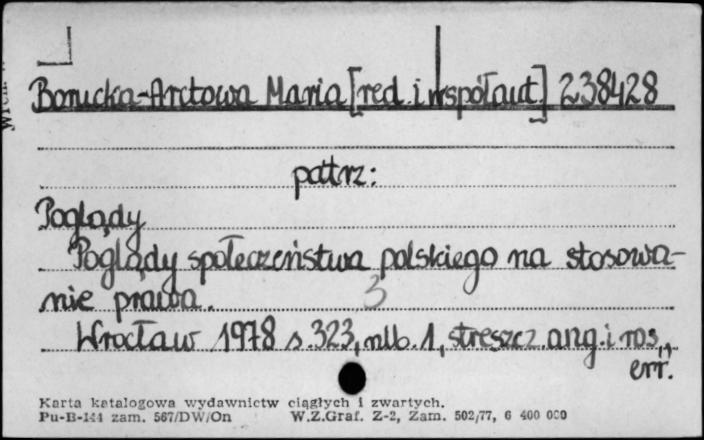 Borucka-Arctowa Maria [red. i współaut.] 238428
patrz:
Poglądy
Poglądy społeczeństwa polskiego na stosowa-
nie prawa.
3
Wrocław 1978 s. 323, nlb. 1, streszcz. ang. i ros.,
err.
Karta katalogowa wydawnictw ciągłych i zwartych.
Pu-B-144 zam. 567/DW/On W.Z.Graf. Z-2, Zam. 502/77, 6 400 000